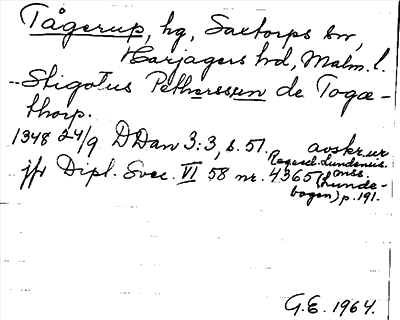 Tågerup, hg, Saxtorps sn,
Harjagers hd, Malm. l.
-- Stigotus Petherssøn de Togæ-
thorp.
1348 24/9 DDan 3:3, s. 51. avskr. ur
Regesd. Lundensis.
jfr Dipl. Svec. VI 58 nr. 4365 (Lunde-
bogen) p. 191.
G.E. 1964.